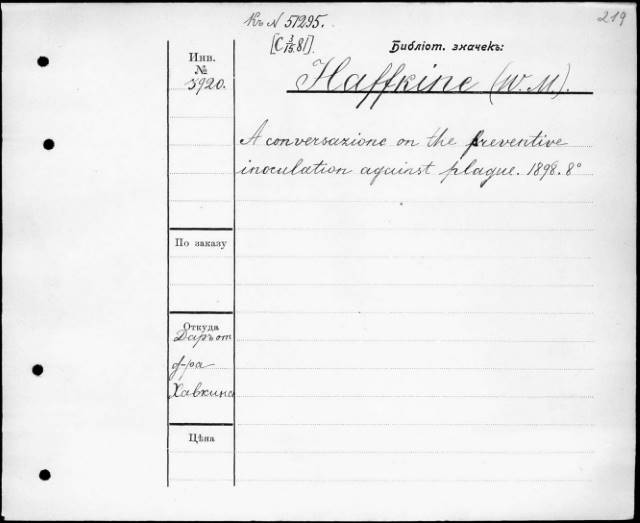 Къ N 51295.
219
[C 3/15 81].
Библіот. значекъ:
Инв.
№
5920.
Haffkine (W. M).
A conversazione on the preventive
inoculation against plague. 1898. 8°
По заказу
Откуда
Даръ от
д-ра
Хавкина
Цѣна